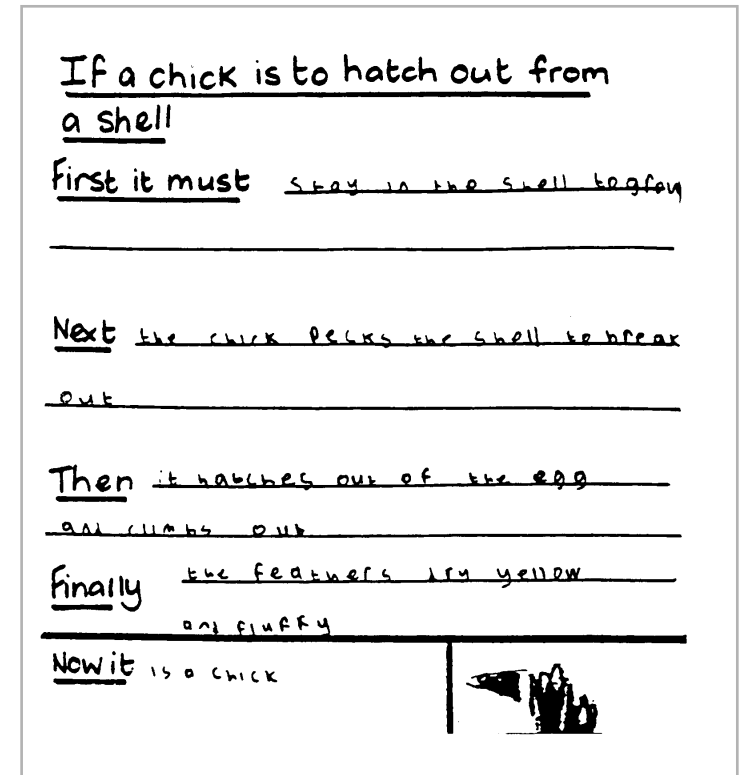 If a chick is to hatch out from
a shell
First it must stay in the shell to grow
Next the chick pecks the shell to break
out
Then it hatches out of the egg
and climbs out
Finally the feathers dry yellow
and fluffy
Now it is a chick